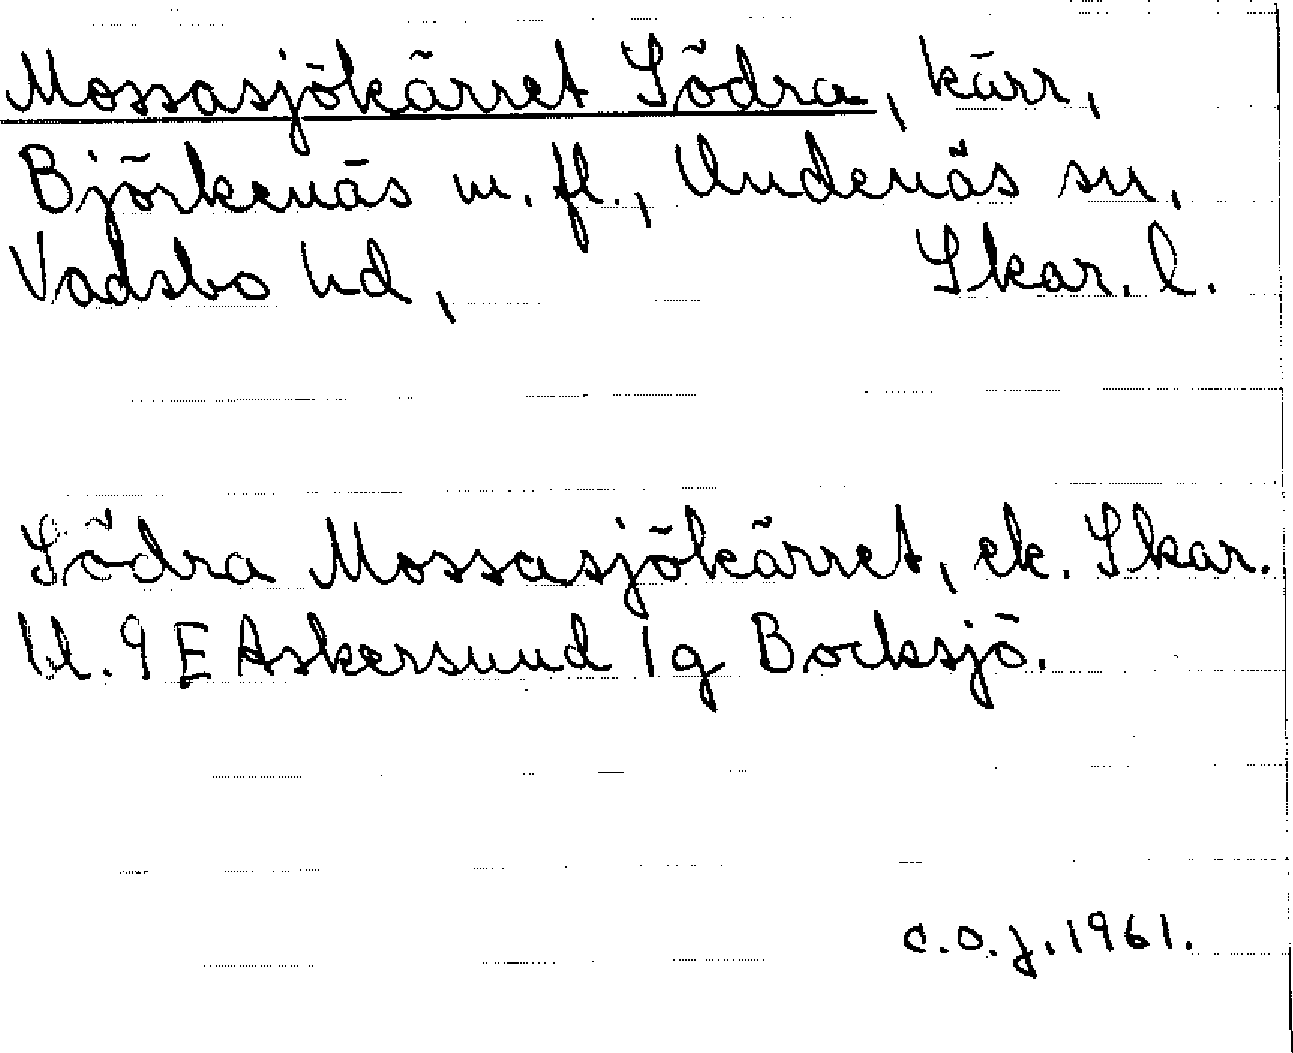 Mossasjökärret Södra, kärr,
Björkenäs m. fl., Undenäs sn,
Vadsbo hd, Skar. l.
Södra Mossasjökärret, ek. Skar.
bl. 9 E Askersund 1 g Bocksjö.
C.O.J. 1961.